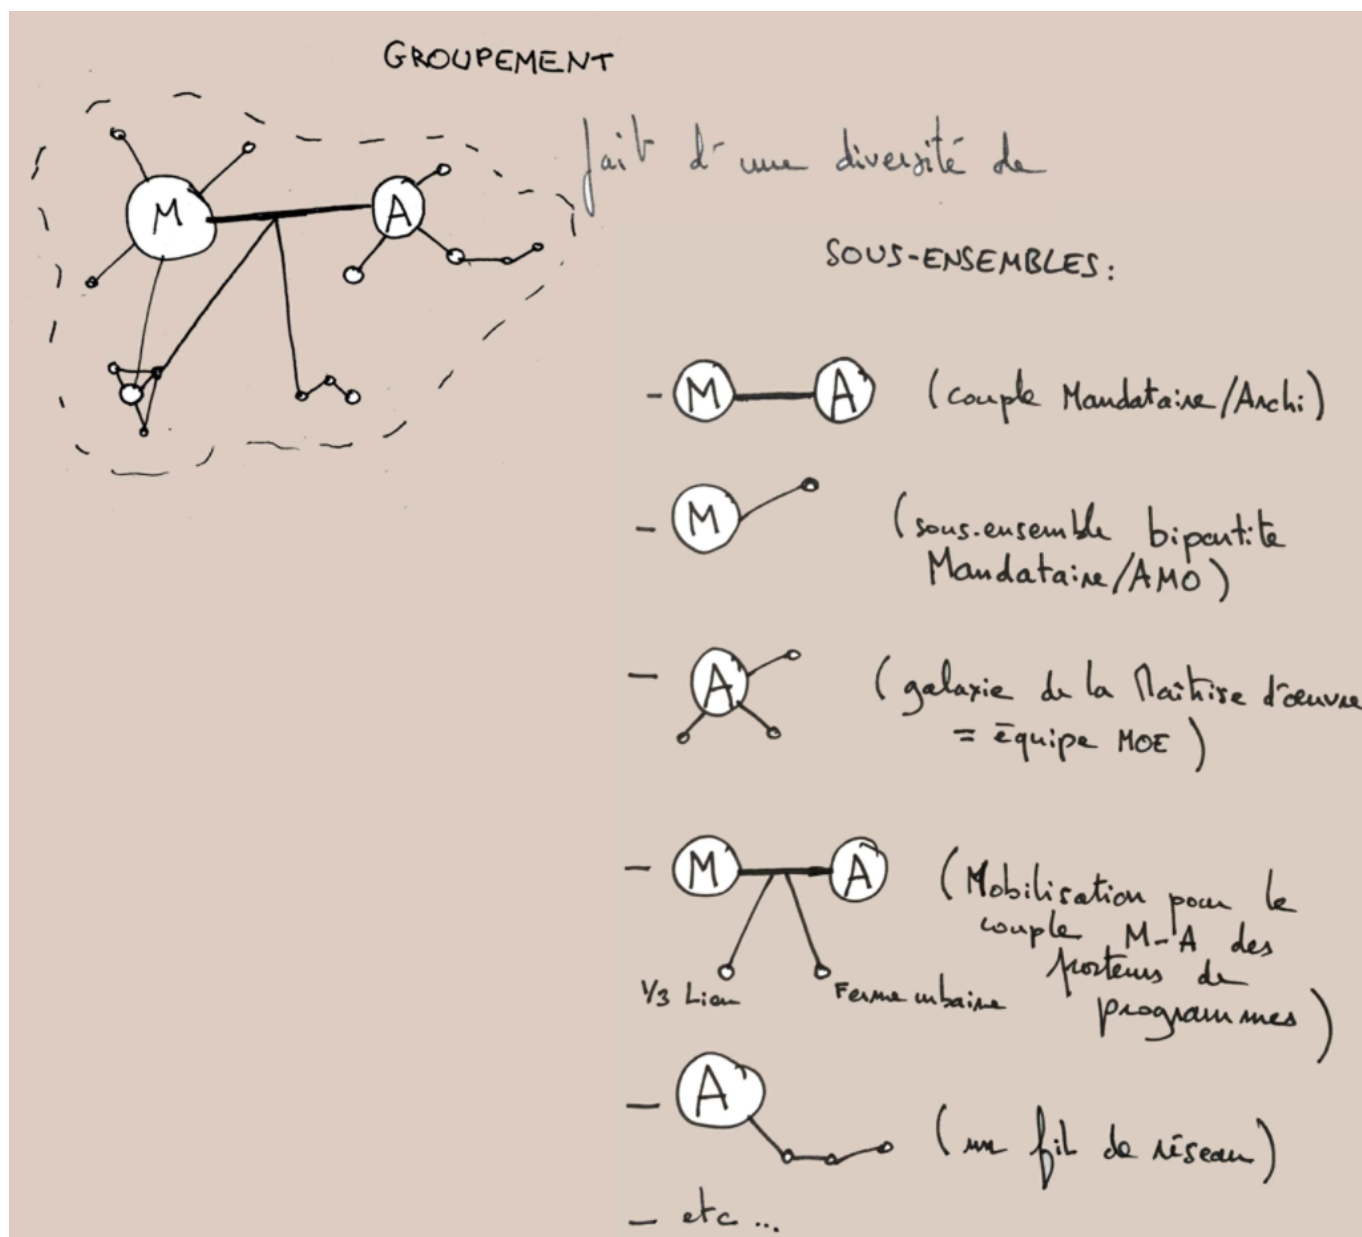 GROUPEMENT
fait d'une diversité de
M
A
SOUS-ENSEMBLES:
- M A (couple Mandataire/Archi)
- M (sous-ensemble bipartite
Mandataire/AMO)
- A (galaxie de la Maîtrise d'œuvre
= équipe MOE)
- M A (Mobilisation pour le
couple M-A des
porteurs de
programmes)
1/3 Lieu
Ferme urbaine
- A (un fil de réseau)
- etc...